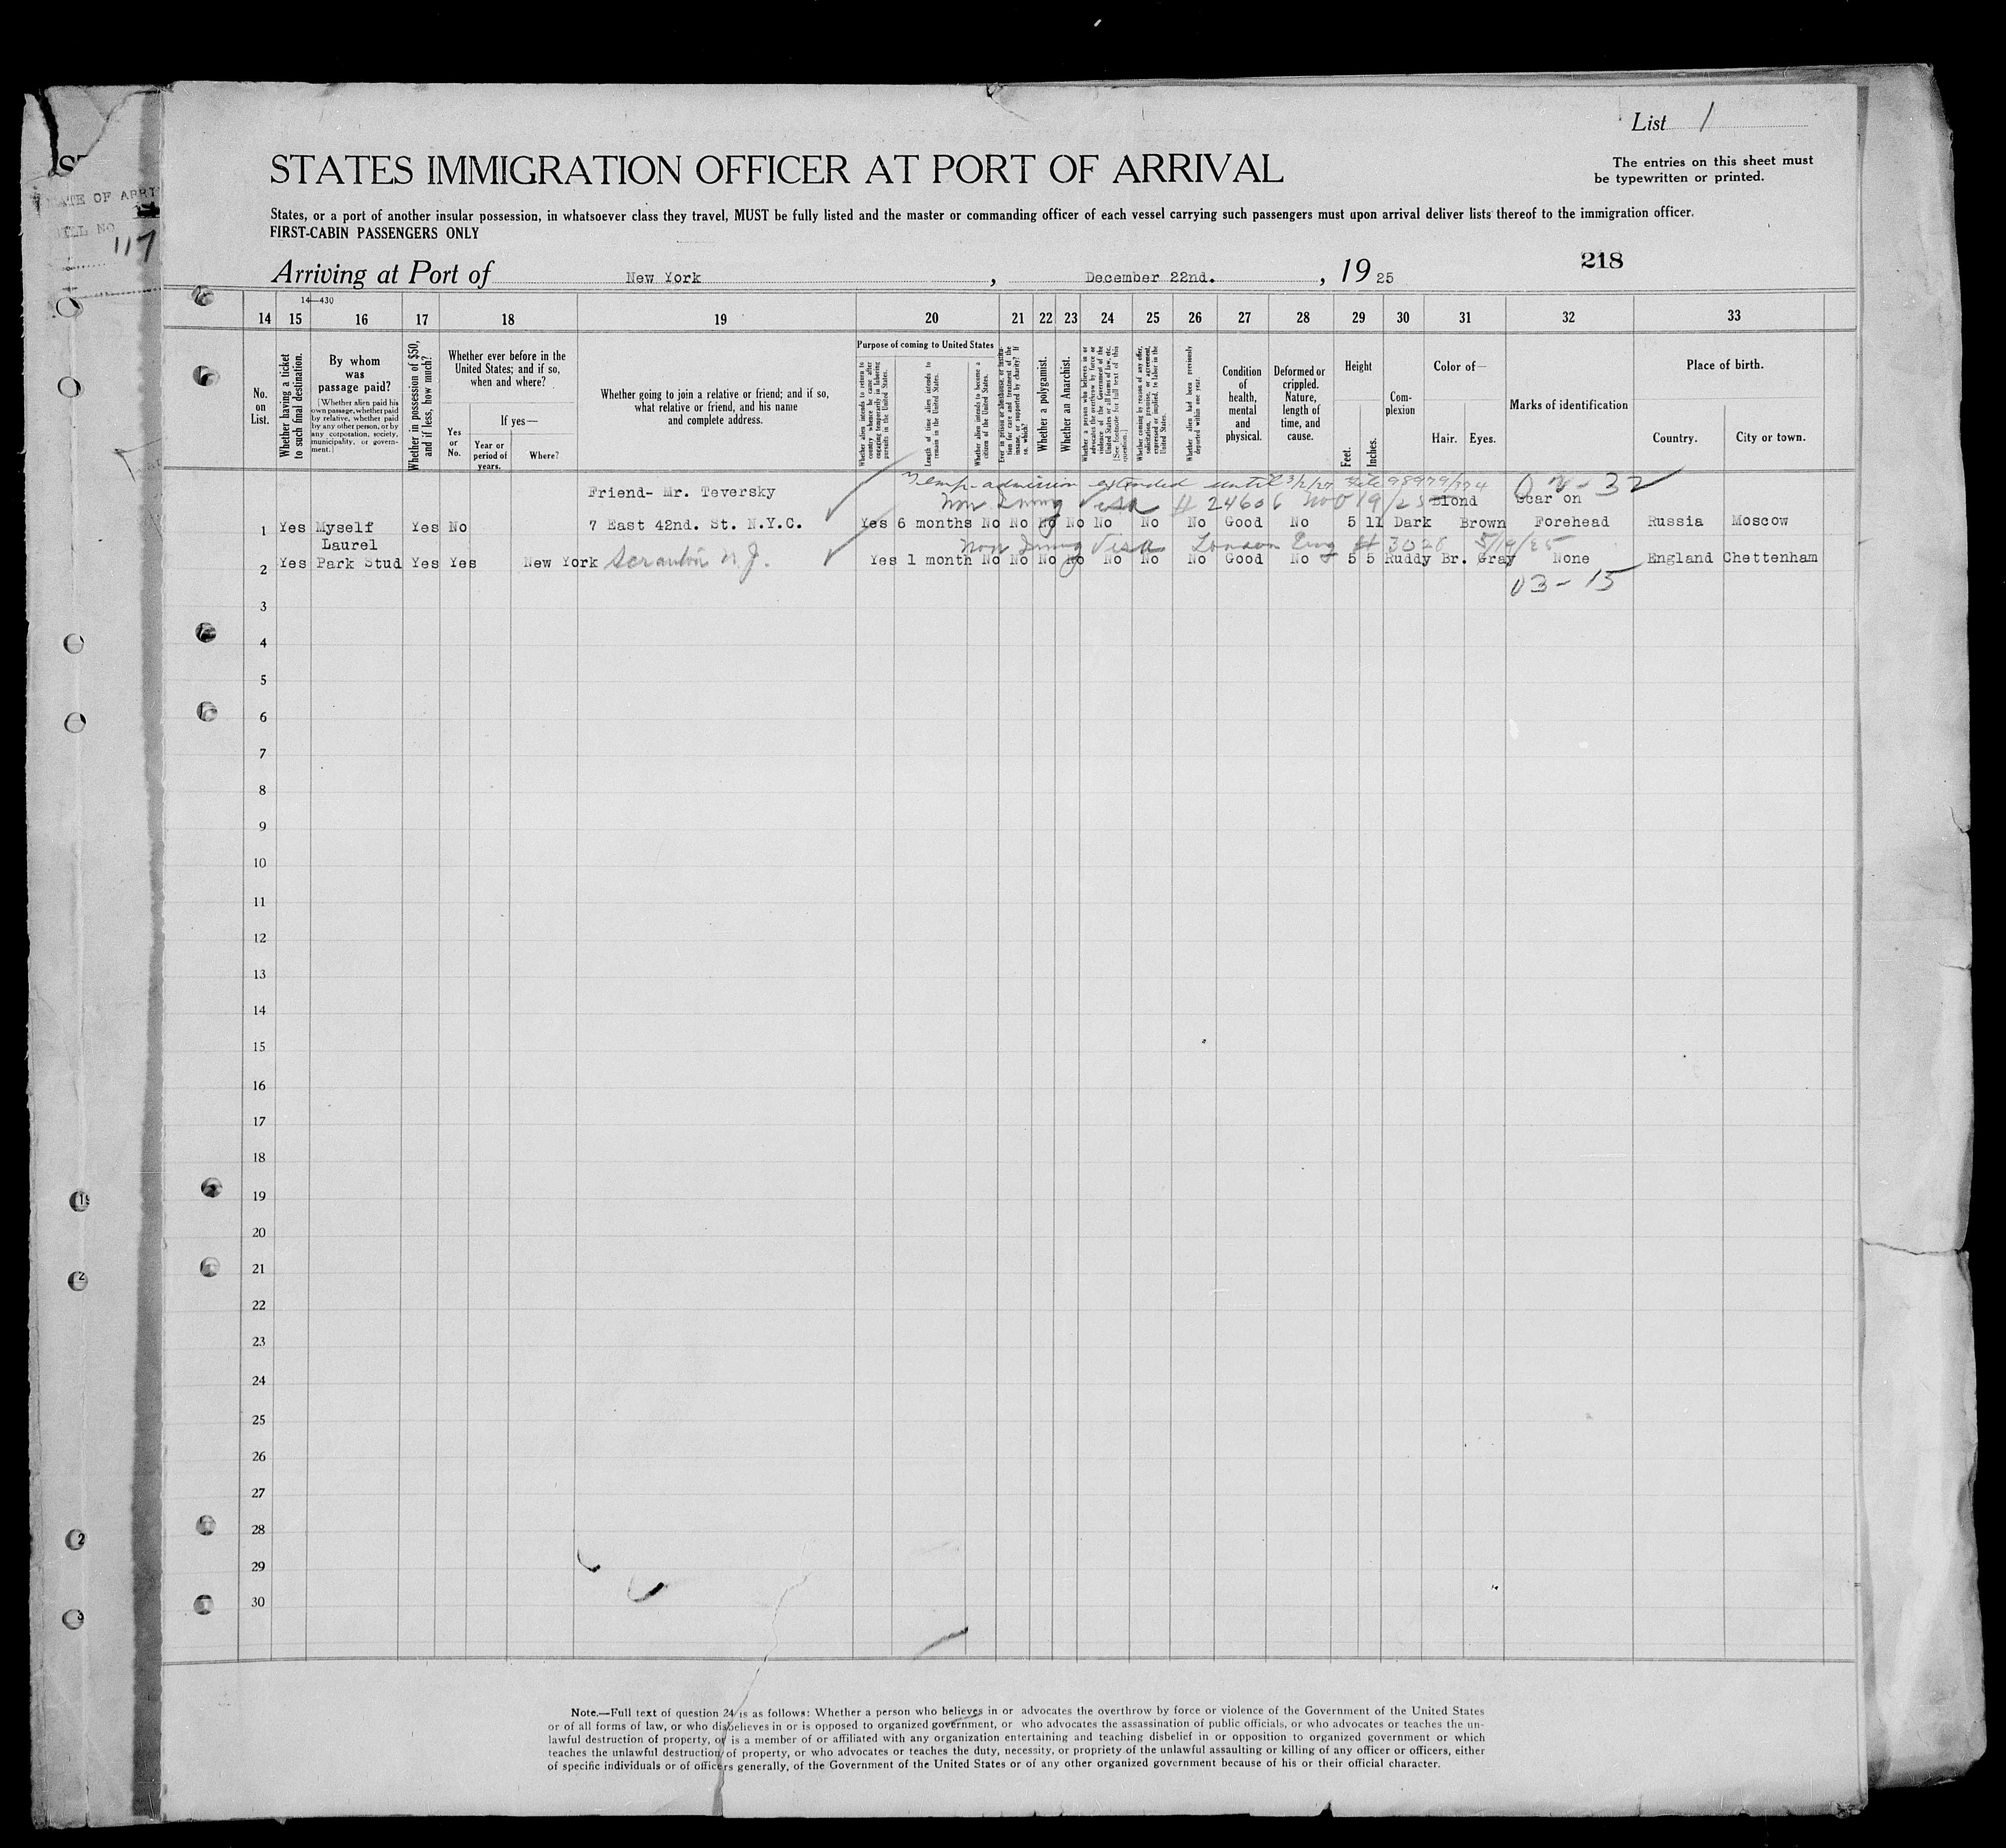 List 1
STATES IMMIGRATION OFFICER AT PORT OF ARRIVAL
The entries on this sheet must
be typewritten or printed.
States, or a port of another insular possession, in whatsoever class they travel, MUST be fully listed and the master or commanding officer of each vessel carrying such passengers must upon arrival deliver lists thereof to the immigration officer.
FIRST-CABIN PASSENGERS ONLY
117
218
Arriving at Port of New York, December 22nd., 1925
14—430
14 15 16 17 18 19 20 21 22 23 24 25 26 27 28 29 30 31 32 33
No. on List.
Whether having a ticket to such final destination.
By whom was passage paid?
[Whether alien paid his own passage, whether paid by relative, whether paid by any other person, or by any corporation, society, municipality, or government.]
Whether in possession of $50, and if less, how much?
Whether ever before in the United States; and if so, when and where?
Yes or No.
If yes—
Year or period of years.
Where?
Whether going to join a relative or friend; and if so, what relative or friend, and his name and complete address.
Purpose of coming to United States
Whether alien intends to return to country whence he came after engaging temporarily in laboring pursuits in the United States.
Length of time alien intends to remain in the United States.
Whether alien intends to become a citizen of the United States.
Ever in prison or almshouse, or institution for care and treatment of the insane, or supported by charity? If so, which?
Whether a polygamist.
Whether an Anarchist.
Whether a person who believes in or advocates the overthrow by force or violence of the Government of the United States or all forms of law, etc. [See footnote for full text of this question.]
Whether coming by reason of any offer, solicitation, promise, or agreement, expressed or implied, to labor in the United States.
Whether alien had been previously deported within one year.
Condition of health, mental and physical.
Deformed or crippled. Nature, length of time, and cause.
Height
Feet.
Inches.
Complexion
Color of—
Hair. Eyes.
Marks of identification
Place of birth.
Country. City or town.
Temp. admission extended until 3/2/27 File 98979/394
Friend- Mr. Teversky Non Immg Visa # 24606 Nov 19/25 Blond Scar on
1 Yes Myself Yes No 7 East 42nd. St. N.Y.C. Yes 6 months No No No No No No No Good No 5 11 Dark Brown Forehead Russia Moscow
Laurel Non Immg Visa London Eng # 3028
2 Yes Park Stud Yes Yes New York Scranton N.J. Yes 1 month No No No No No No No Good No 5 5 Ruddy Br. Gray None England Chettenham
03-15
3
4
5
6
7
8
9
10
11
12
13
14
15
16
17
18
19
20
21
22
23
24
25
26
27
28
29
30
Note.—Full text of question 24 is as follows: Whether a person who believes in or advocates the overthrow by force or violence of the Government of the United States
or of all forms of law, or who disbelieves in or is opposed to organized government, or who advocates the assassination of public officials, or who advocates or teaches the un-
lawful destruction of property, or is a member of or affiliated with any organization entertaining and teaching disbelief in or opposition to organized government or which
teaches the unlawful destruction of property, or who advocates or teaches the duty, necessity, or propriety of the unlawful assaulting or killing of any officer or officers, either
of specific individuals or of officers generally, of the Government of the United States or of any other organized government because of his or their official character.